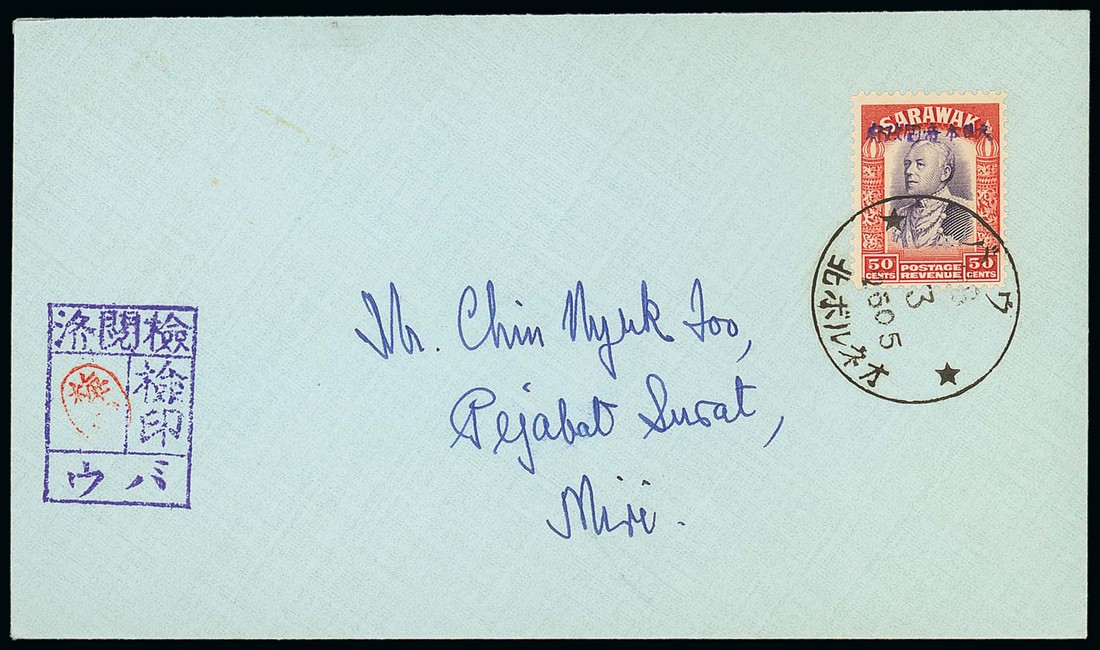 SARAWAK
大日本帝國政府
50 CENTS
POSTAGE
REVENUE
50 CENTS
バウ
3
2605
北ボルネオ
Mr. Chin Nyuk Foo,
Pejabat Surat,
Miri.
檢閲済
檢印
バウ